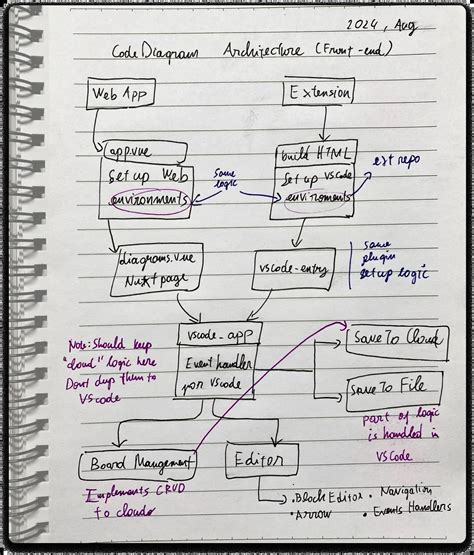 2024, Aug
CodeDiagram Architecture (Front-end)
Web App
Extension
app.vue
Set up Web
environments
same
logic
build HTML
Set up vscode
enviroments
ext repo
diagrams.vue
Nuxt page
vscode-entry
same
plugin
setup logic
vscode-app
Event handler
for vscode
Note: Should keep
"cloud" logic here
Don't dup them to
VScode
Save To Cloud
Save To File
part of logic
is handled in
VSCode
Board Management
Implements CRUD
to cloud
Editor
• Block Editor • Navigation
• Arrow • Events Handlers